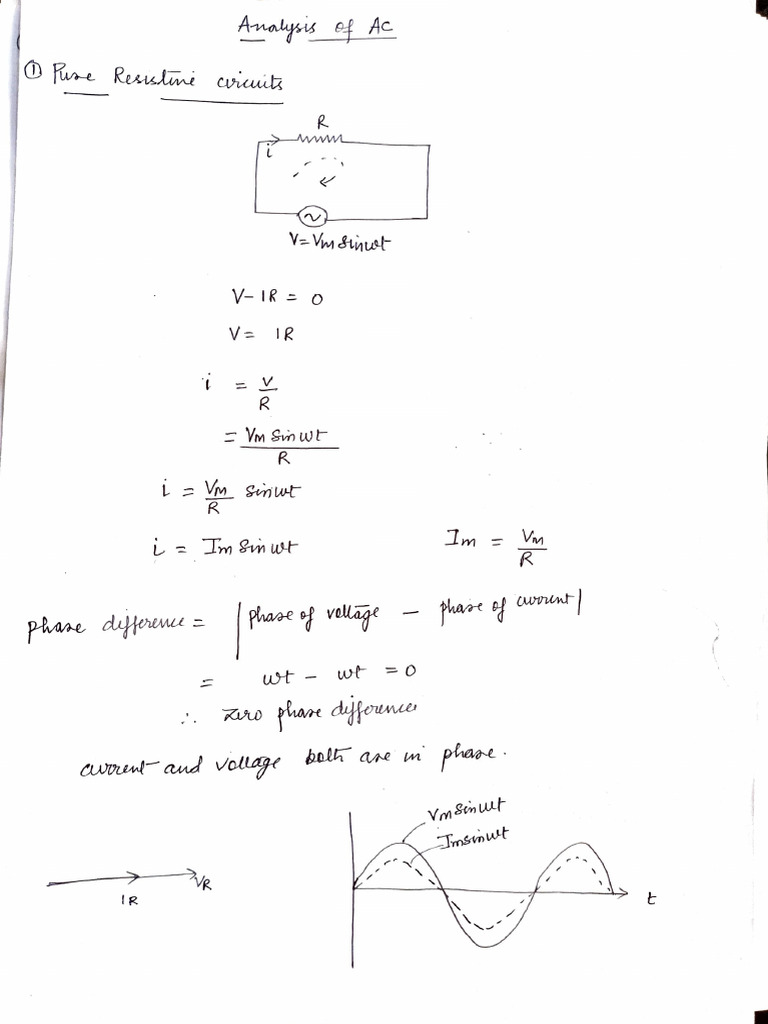 Analysis of AC
① Pure Resistive circuits
R
i
V=Vm sinωt
V-IR = 0
V= IR
i = V/R
= Vm sin ωt / R
i = Vm/R sinωt
i = Im sin ωt
Im = Vm/R
phase difference = | phase of voltage - phase of current |
= ωt - ωt = 0
∴ zero phase difference
current and voltage both are in phase.
Vm sin ωt
Im sin ωt
IR
VR
t